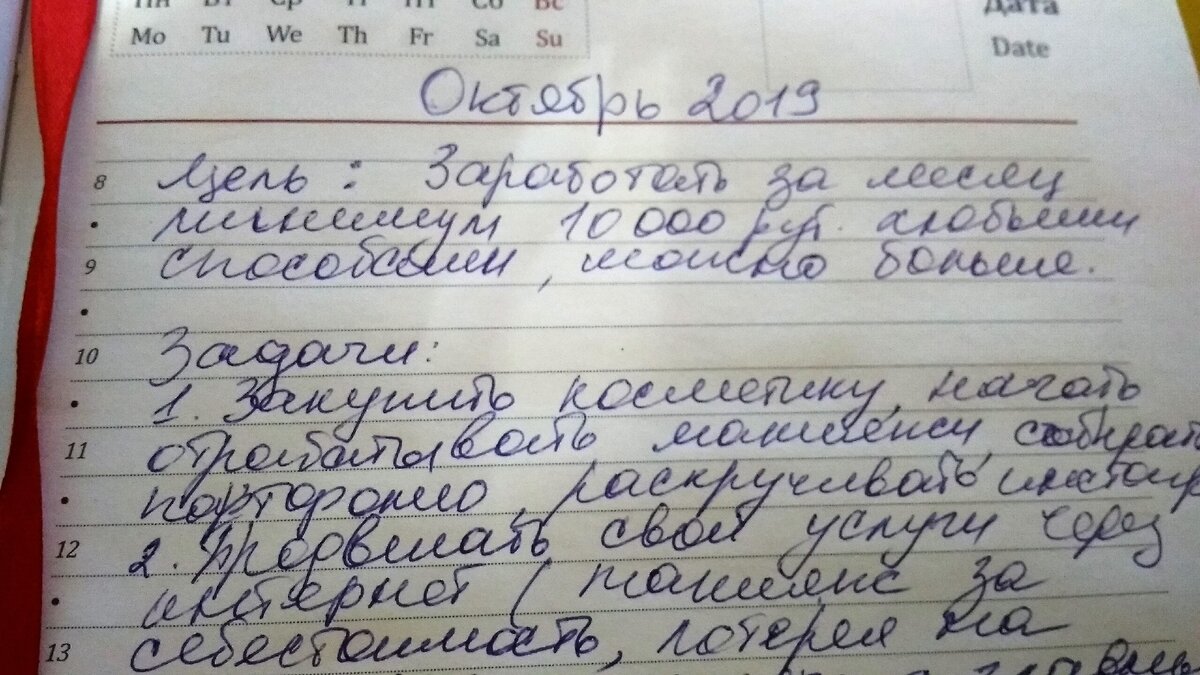 Пн Вт Ср Чт Пт Сб Вс
Дата
Mo Tu We Th Fr Sa Su
Date
Октябрь 2019
8 Цель: Заработать за месяц
минимум 10 000 руб. любыми
9 способами, можно больше.
10 Задачи:
1. Закупить косметику, начать
11 отрабатывать макияжи, собирать
портфолио, раскручивать инстагр
12 2. Продвигать свои услуги через
интернет (макияж за
13 себестоимость, лотерея на